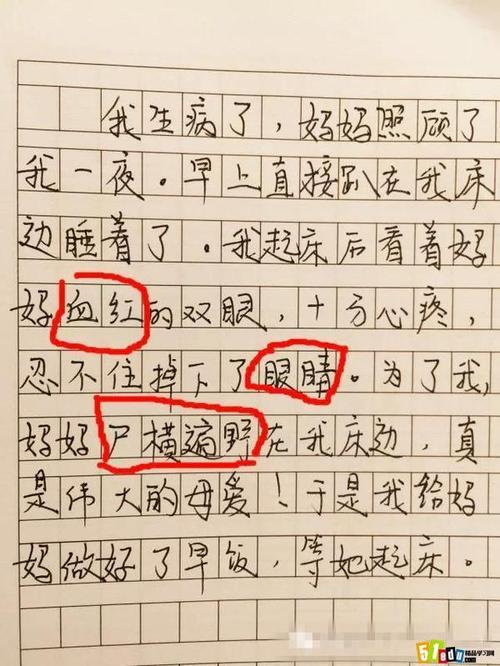 我生病了，妈妈照顾了
我一夜。早上直接趴在我床
边睡着了。我起床后看着妈
妈血红的双眼，十分心疼，
忍不住掉下了眼睛。为了我，
妈妈尸横遍野在我床边，真
是伟大的母爱！于是我给妈
妈做好了早饭，等她起床。
51edu
精品学习网
.com